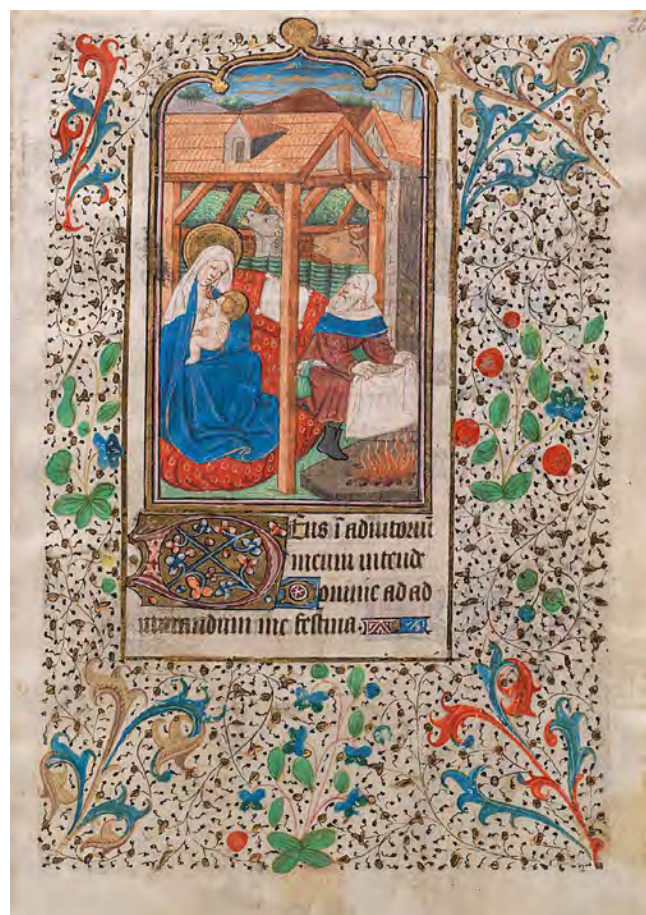 Deus ī adiutoriū
meum intende
Domine ad ad
iuuandum me festina